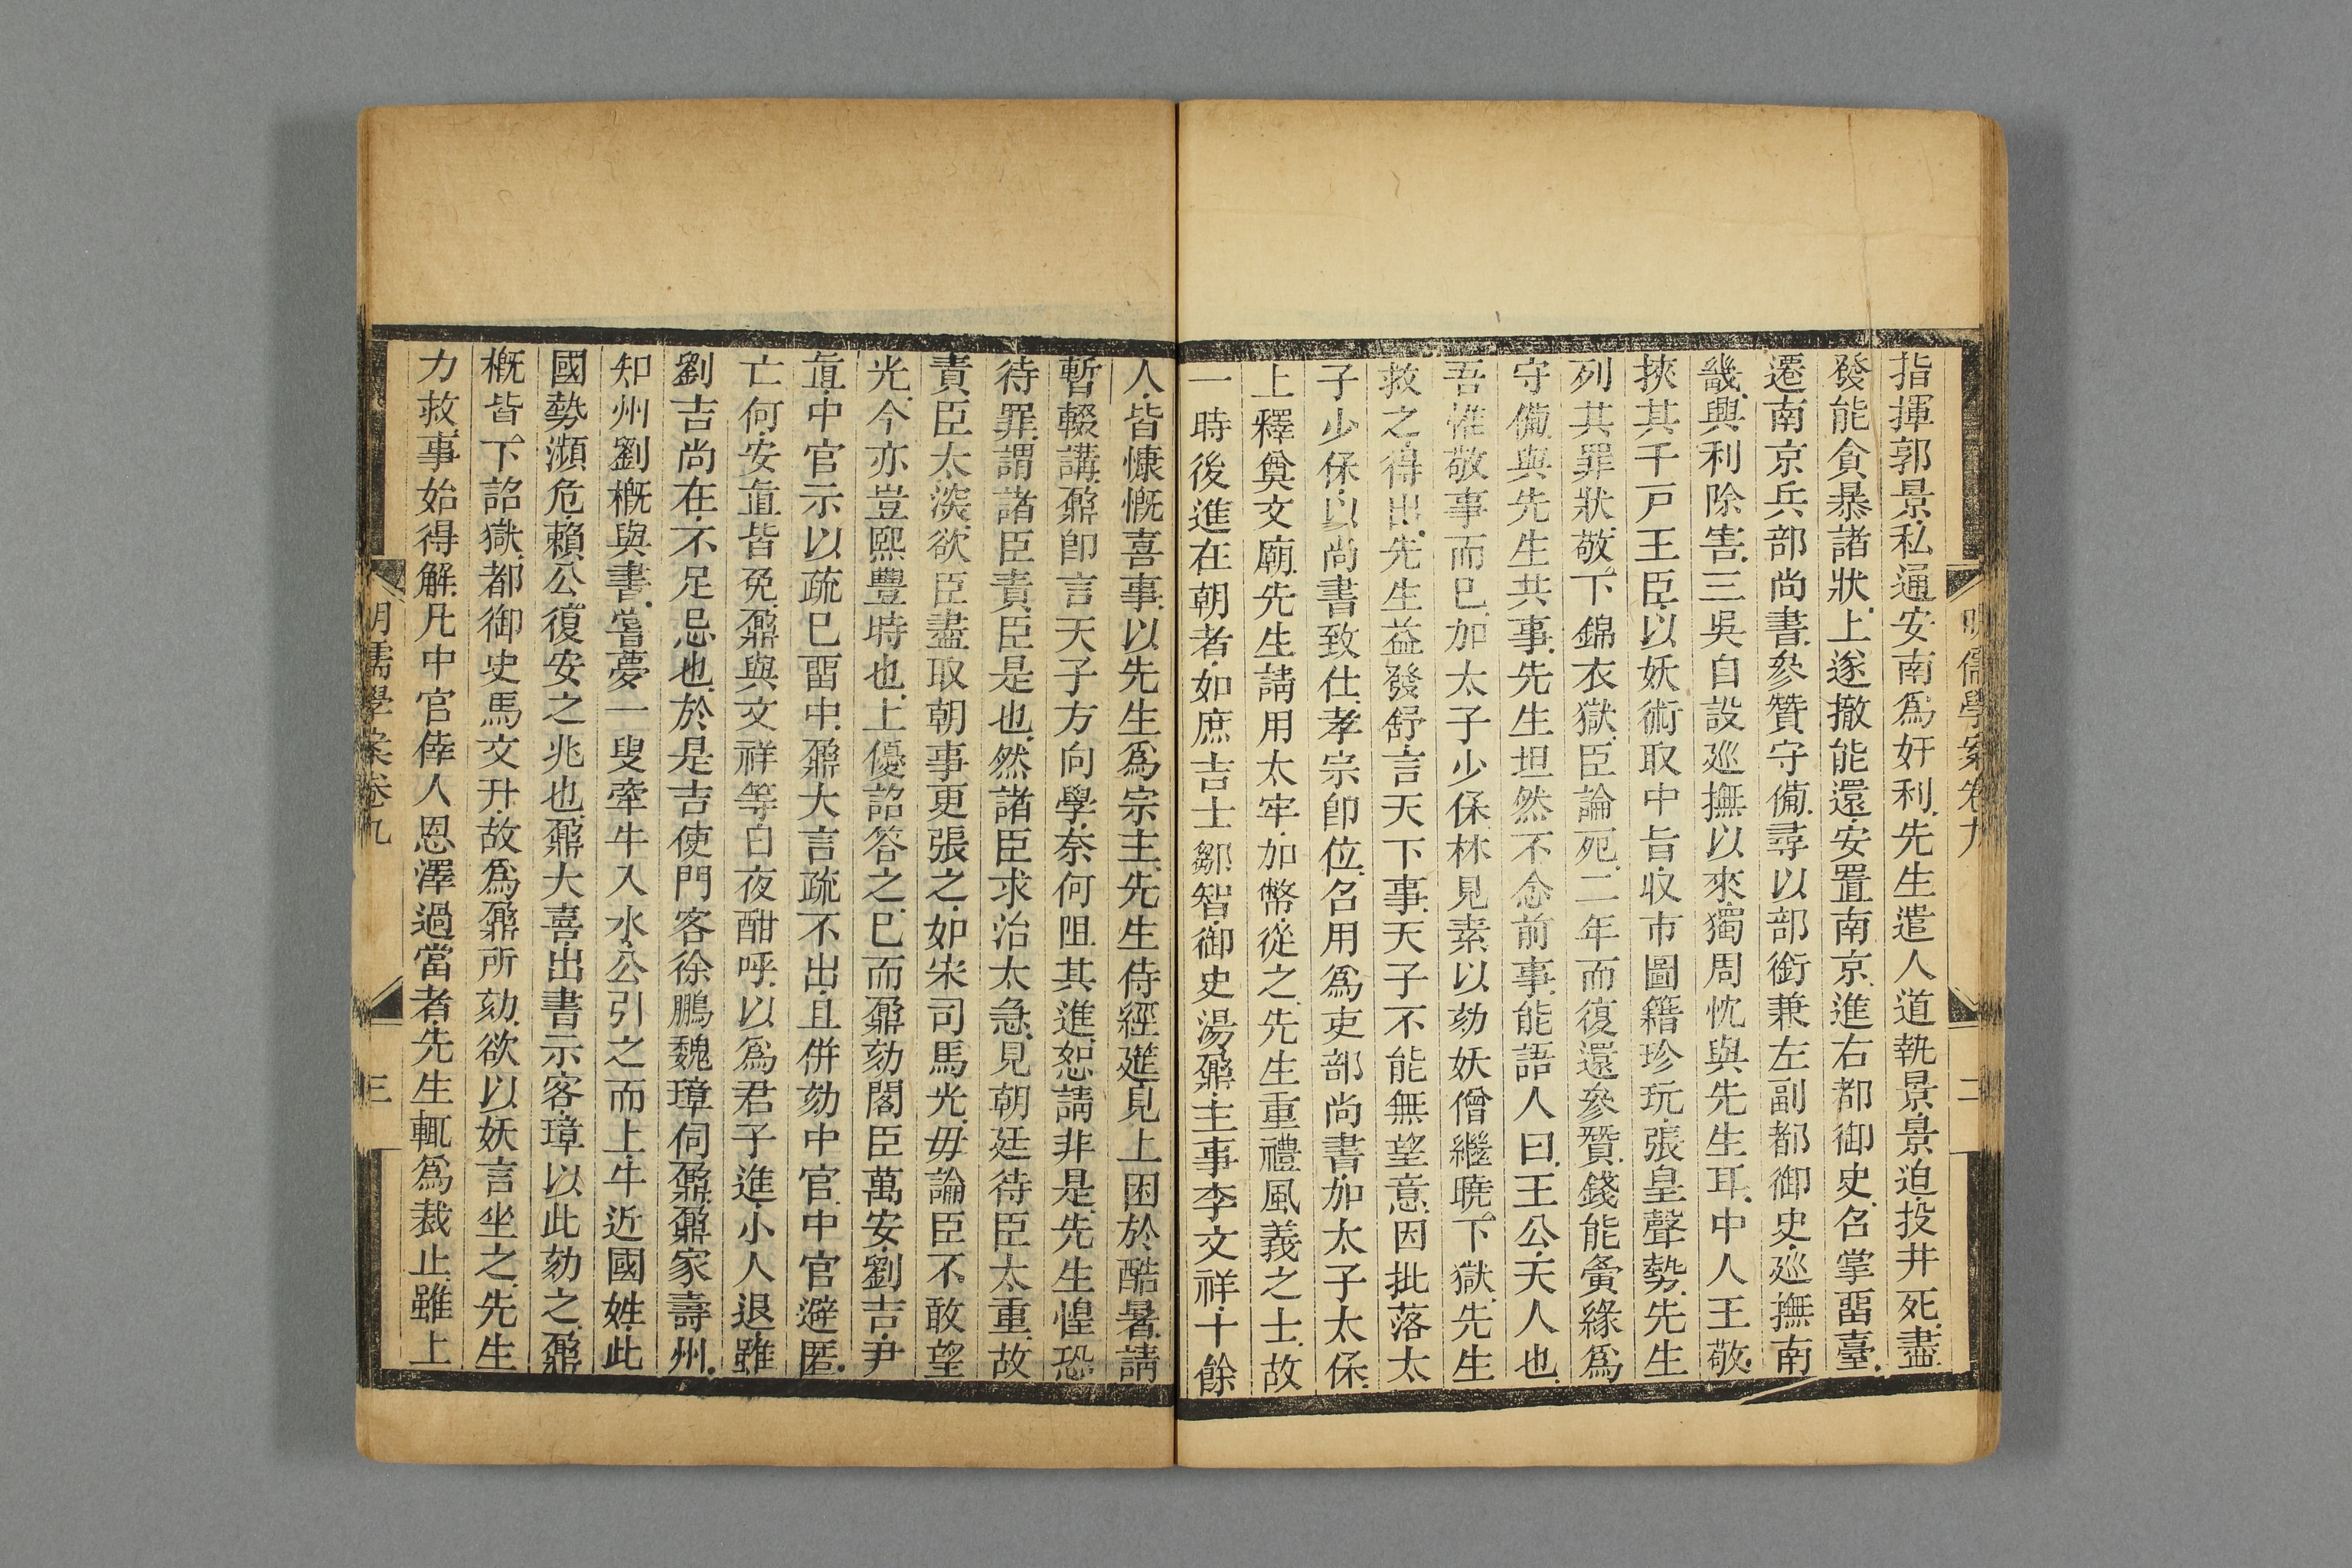 明儒學案卷九
二
指揮郭景私通安南爲奸利先生遣人道執景景迫投井死盡
發能貪暴諸狀上遂撤能還安置南京進右都御史名掌畱臺
遷南京兵部尚書參贊守備尋以部銜兼左副都御史巡撫南
畿興利除害三吳自設巡撫以來獨周忱與先生耳中人王敬
挾其千戸王臣以妖術取中旨收市圖籍珍玩張皇聲勢先生
列其罪狀敬下錦衣獄臣論死二年而復還參贊錢能夤緣爲
守備與先生共事先生坦然不念前事能語人曰王公天人也
吾惟敬事而已加太子少保林見素以劾妖僧繼曉下獄先生
救之得出先生益發舒言天下事天子不能無望意因批落太
子少保以尚書致仕孝宗卽位名用爲吏部尚書加太子太保
上釋奠文廟先生請用太牢加幣從之先生重禮風義之士故
一時後進在朝者如庶吉士鄒智御史湯鼐主事李文祥十餘
人皆慷慨喜事以先生爲宗主先生侍經筵見上困於酷暑請
暫輟講鼐卽言天子方向學奈何阻其進恕請非是先生惶恐
待罪謂諸臣責臣是也然諸臣求治太急見朝廷待臣太重故
責臣太深欲臣盡取朝事更張之如宋司馬光毋論臣不敢望
光今亦豈熙豐時也上優詔答之已而鼐劾閣臣萬安劉吉尹
直中官示以疏已畱中鼐大言疏不出且併劾中官中官避匿
亡何安直皆免鼐與文祥等白夜酣呼以爲君子進小人退雖
劉吉尚在不足忌也於是吉使門客徐鵬魏璋伺鼐鼐家壽州
知州劉槪與書嘗夢一叟牽牛入水公引之而上牛近國姓此
國勢瀕危賴公復安之兆也鼐大喜出書示客璋以此劾之鼐
槪皆下詔獄都御史馬文升故爲鼐所劾欲以妖言坐之先生
力救事始得解凡中官倖人恩澤過當者先生輒爲裁止雖上
明儒學案卷九
三